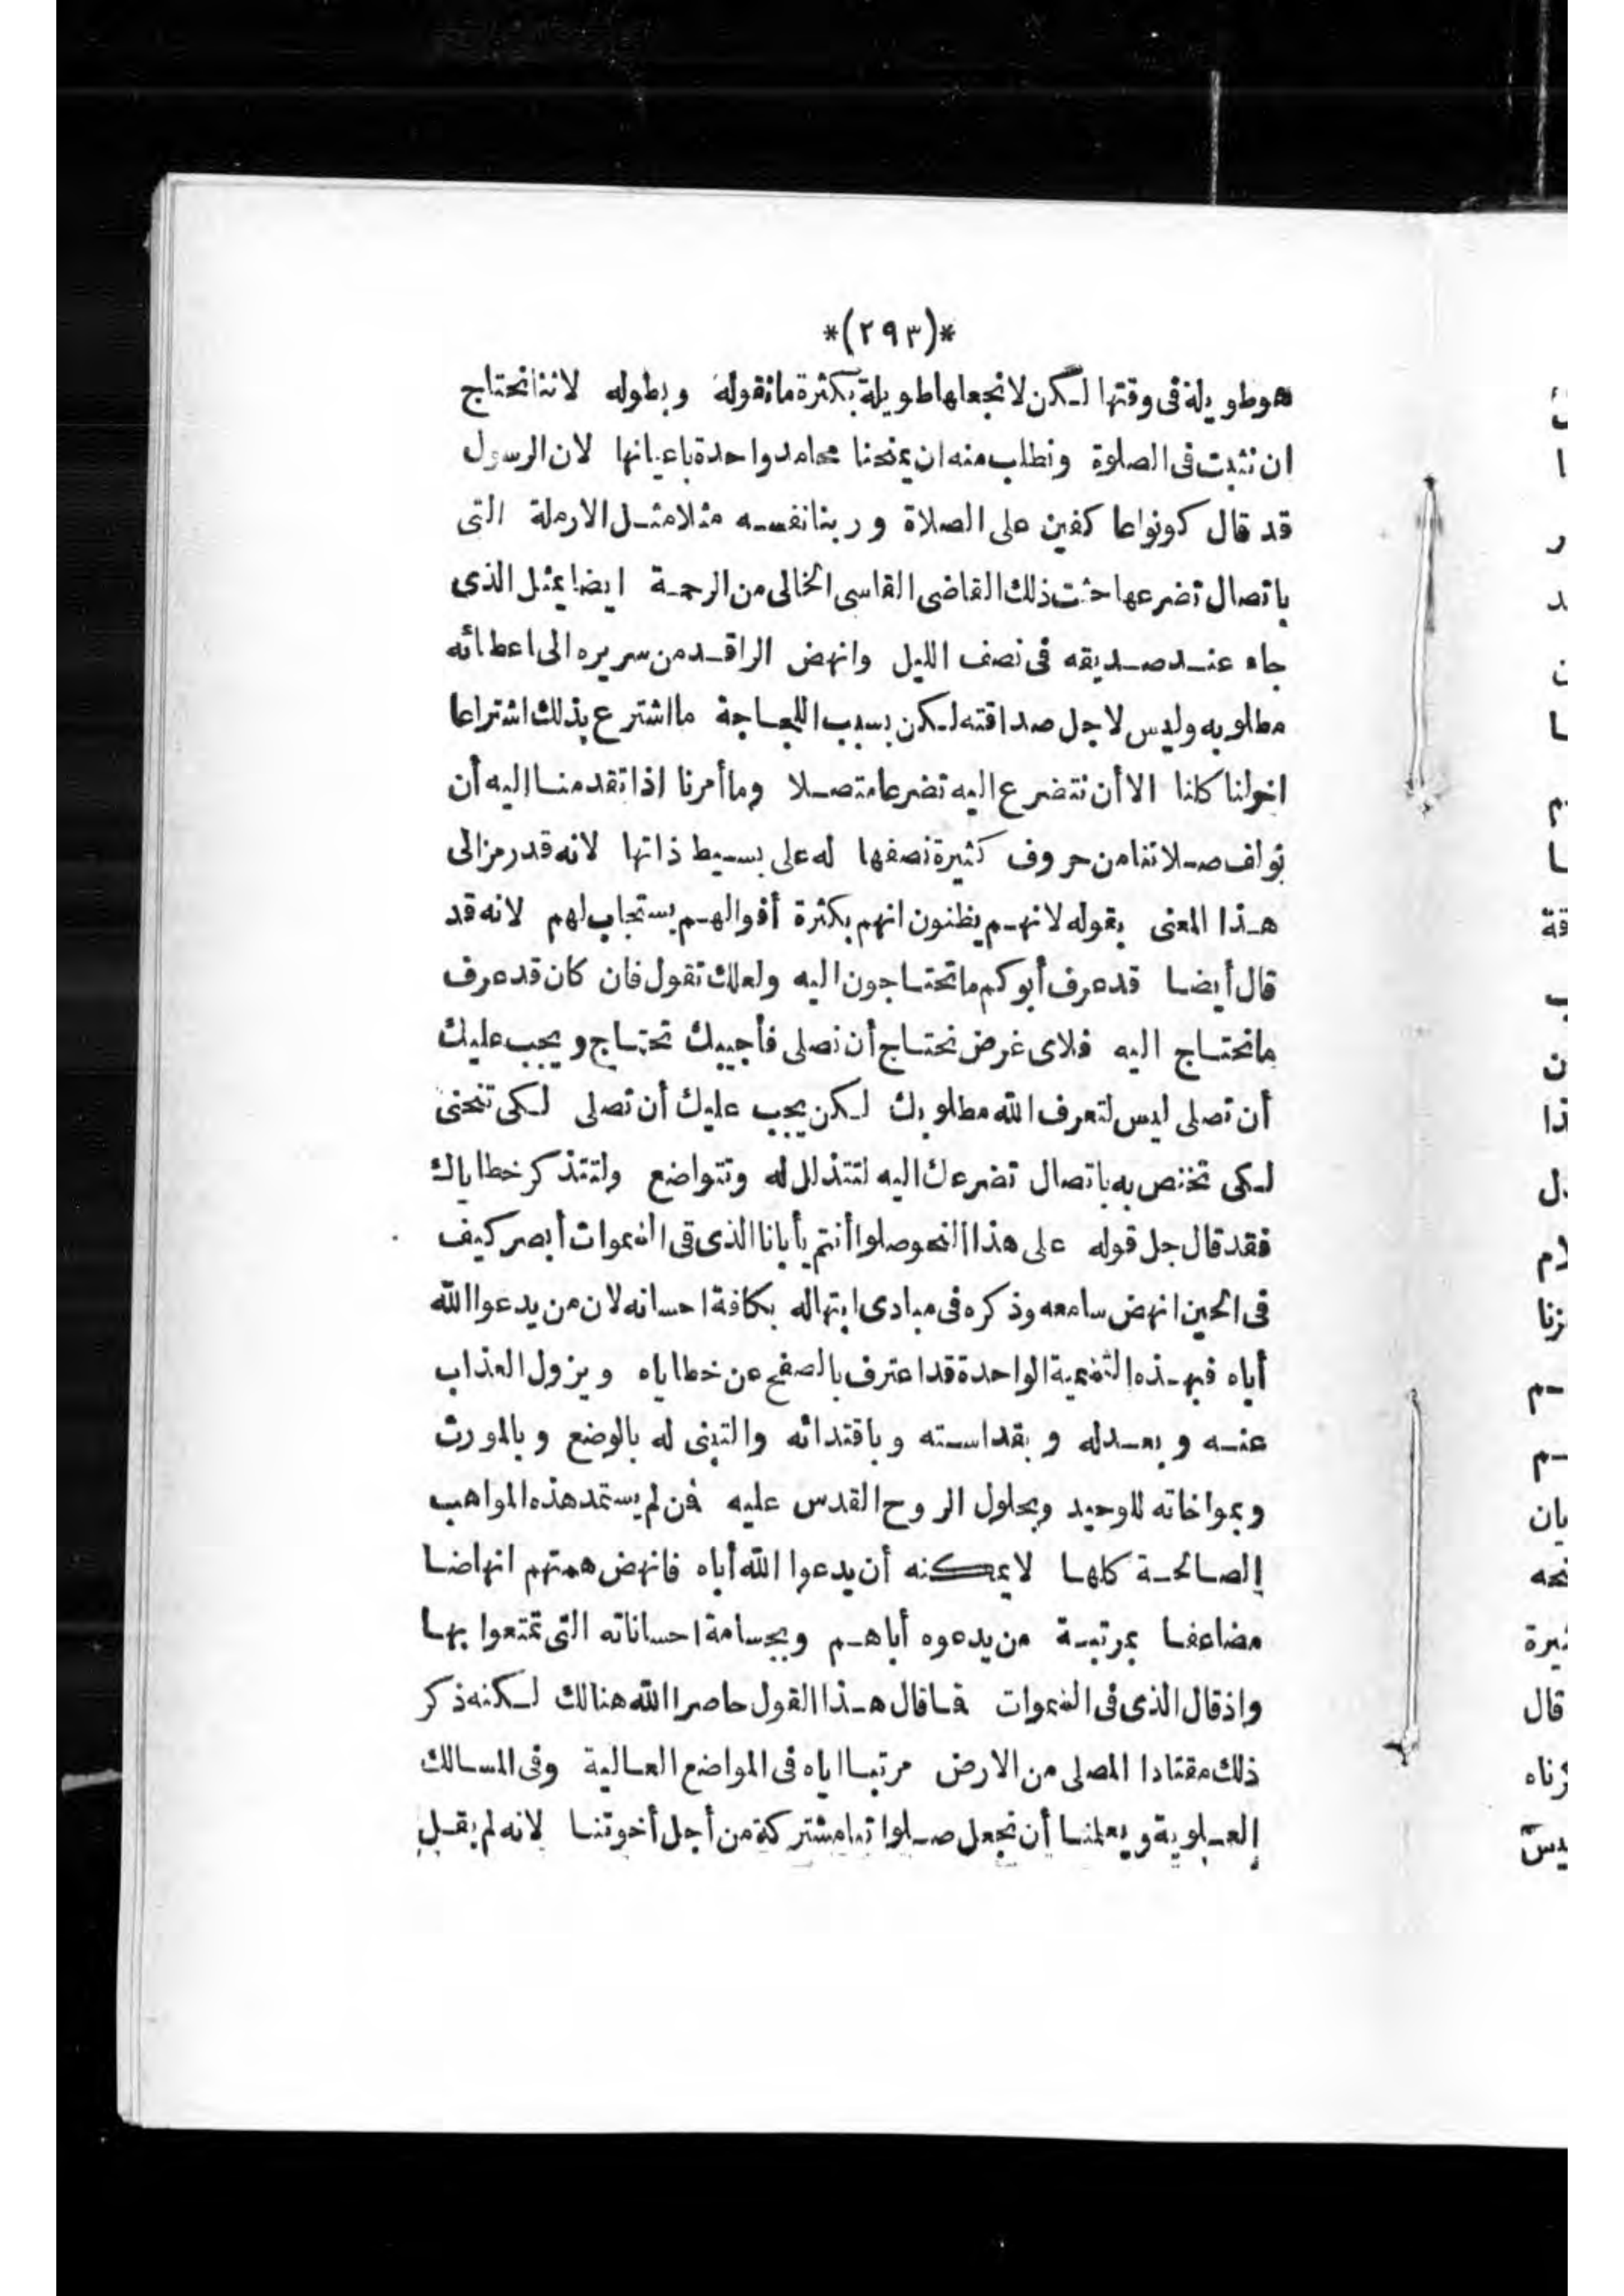 *(٢٩٣)*
هو طويلة فى وقتها لكن لا نجعلها طويلة بكثرة ما نقوله وبطوله لاننا نحتاج
ان نثبت فى الصلوة ونطلب منه ان يمنحنا محامد واحدة باعيانها لان الرسول
قد قال كونوا عاكفين على الصلاة وربنا نفسه مثلا مثل الارملة التى
باتصال تضرعها حثت ذلك القاضى القاسى الخالى من الرحمة ايضا يمثل الذى
جاء عند صديقه فى نصف الليل وانهض الراقد من سريره الى اعطائه
مطلوبه وليس لاجل صداقته لكن بسبب اللجاجة ما اشترع بذلك اشتراعا
اخولنا كلنا الا أن نتضرع اليه تضرعا متصلا وما أمرنا اذا تقدمنا اليه أن
نولف صلاتنا من حروف كثيرة نصفها له على بسيط ذاتها لانه قد رمز الى
هذا المعنى بقوله لانهم يظنون انهم بكثرة أقوالهم يستجاب لهم لانه قد
قال أيضا قد عرف أبوكم ما تحتاجون اليه ولعلك تقول فان كان قد عرف
ما نحتاج اليه فلاى غرض نحتاج أن نصلى فأجيبك تحتاج ويجب عليك
أن تصلى ليس لتعرف الله مطلوبك لكن يجب عليك أن تصلى لكى تنحنى
لكى تختص به باتصال تضرعك اليه لتتذلل له وتتواضع ولتتذكر خطاياك
فقد قال جل قوله على هذا النحو صلوا أنتم يأبانا الذى فى السموات أبصر كيف
فى الحين انهض سامعه وذكره فى مبادى ابتهاله بكافة احسانه لان من يدعوا الله
أباه فبهذه التسمية الواحدة قد اعترف بالصفح عن خطاياه ويزول العذاب
عنه وبعدله وبقداسته وبافتدائه والتبنى له بالوضع وبالمورث
وبمواخاته للوحيد وبحلول الروح القدس عليه فمن لم يستمد هذه المواهب
الصالحة كلها لا يمكنه أن يدعوا الله أباه فانهض همتهم انهاضا
مضاعفا بمرتبة من يدعوه أباهم وبجسامة احساناته التى تمتعوا بها
واذ قال الذى فى السموات فما قال هذا القول حاصرا الله هنالك لكنه ذكر
ذلك مقتادا المصلى من الارض مرتبا اياه فى المواضع العالية وفى المسالك
العلوية ويعلمنا أن نجعل صلواتنا مشتركة من أجل أخوتنا لانه لم يقل